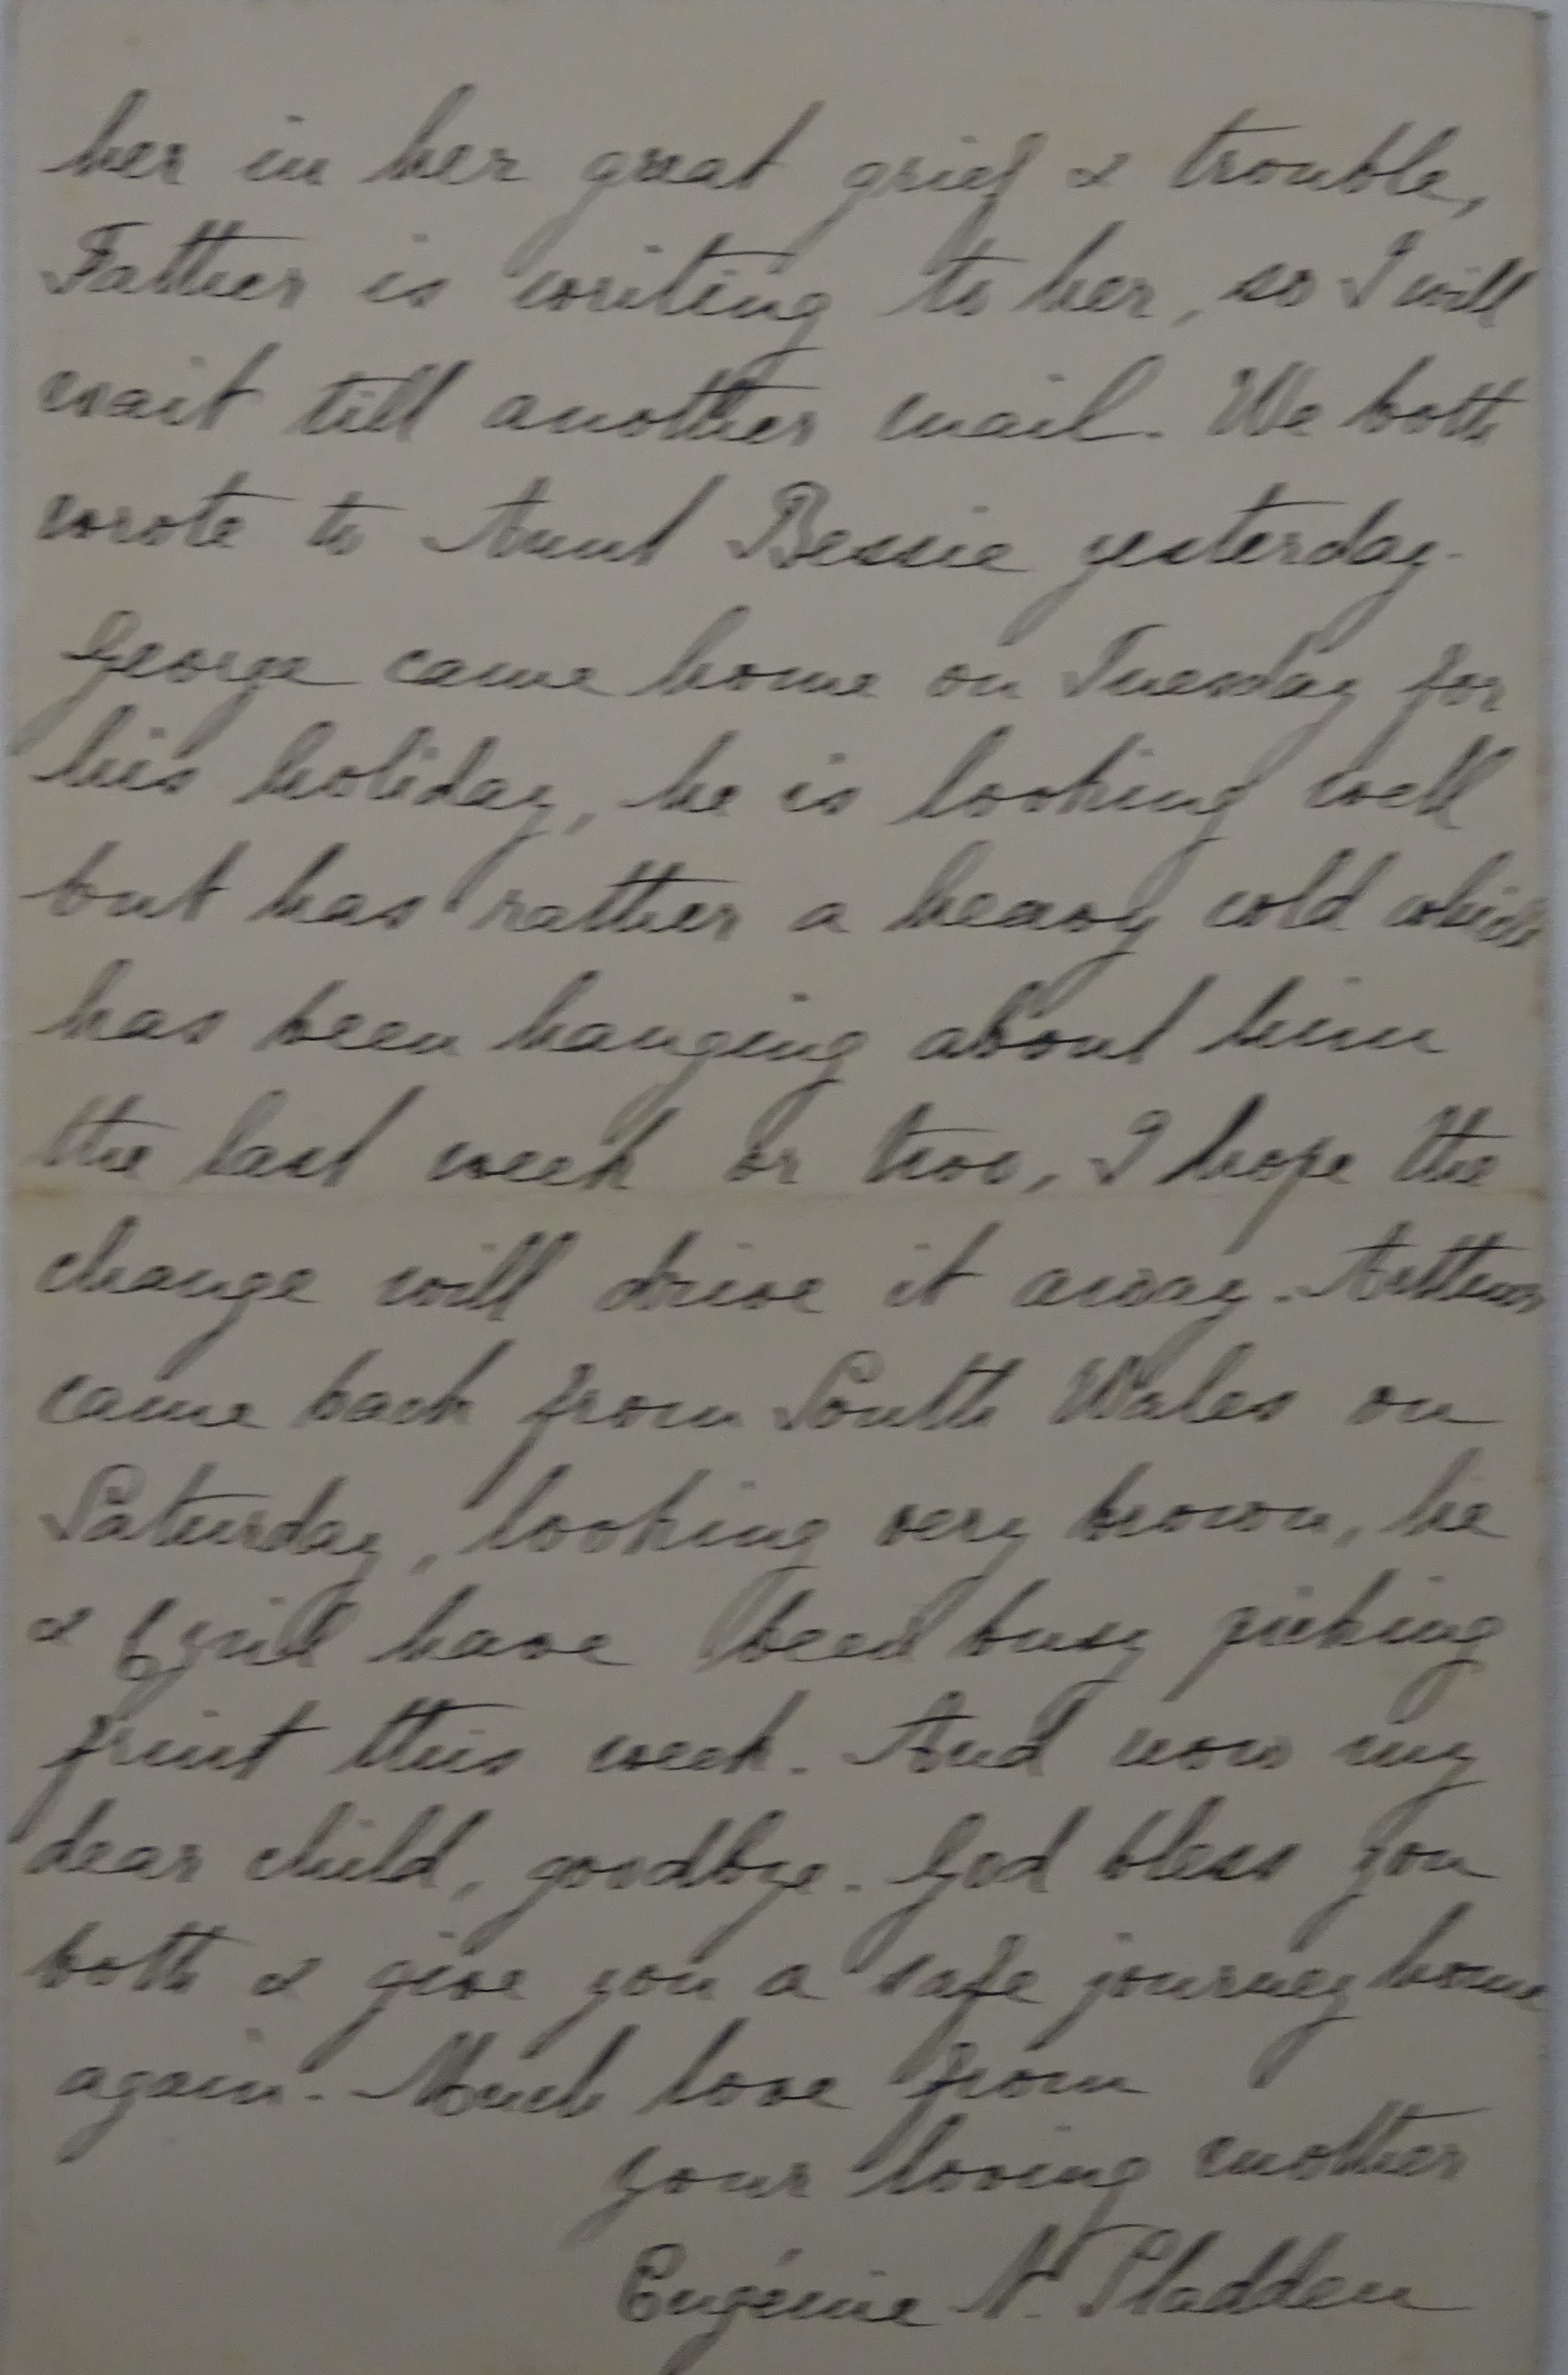 her in her great grief & trouble,
Father is writing to her, so I will
wait till another mail. We both
wrote to Aunt Bessie yesterday.
George came home on Tuesday for
his holiday, he is looking well
but has rather a heavy cold which
has been hanging about him
the last week or two, I hope the
change will drive it away. Arthur
came back from South Wales on
Saturday, looking very brown, he
& Cyril have been busy picking
fruit this week. And now my
dear child, goodbye. God bless you
both & give you a safe journey home
again. Much love from
your loving mother
Eugénie N. Sladden